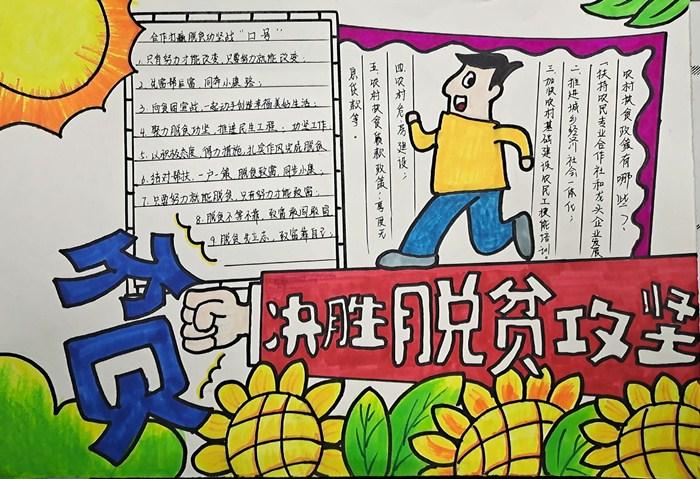 合作打赢脱贫功坚战“口号”
1.只有努力才能改变,只要努力就能改变;
2.先富帮后富,同奔小康路;
3.向贫困宣战,一起动手创造幸福美好生活;
4.聚力脱贫功坚,推进民生工程,功坚工作
5.以积极态度,得力措施,扎实作风完成脱贫
6.结对帮扶,一户一策,脱贫致富,同步小康;
7.只要努力就能脱贫,只有努力才能致富;
8.脱贫不等不靠,致富敢闯敢冒
9.脱贫先立志,致富靠自己;
农村扶贫政策有哪些?
一扶持农民专业合作社和龙头企业发展
二.推进城乡经济社会一体化;
三.加快农村基础建设农民工技能培训
四.农村危房建设;
五.农村扶贫贷款政策:享受无
息贷款等.
贫
决胜脱贫攻坚